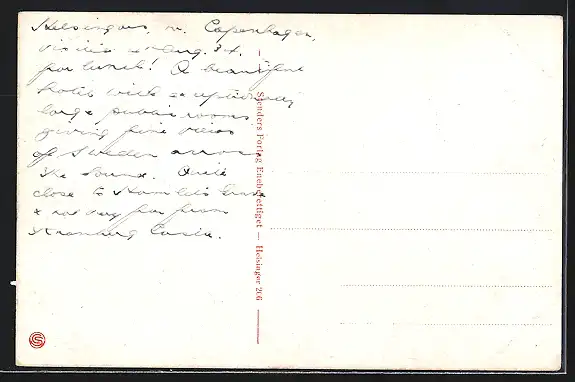 Helsingør, n. Copenhagen,
visited on Aug. 34.
for lunch! A beautiful
hotel with exceptionally
large public rooms
giving fine views
of Sweden across
the Sound. Quite
close to Hamlet's Grave
& not very far from
Kronberg Castle.
Stenders Forlag Eneberettiget — Helsingør 266